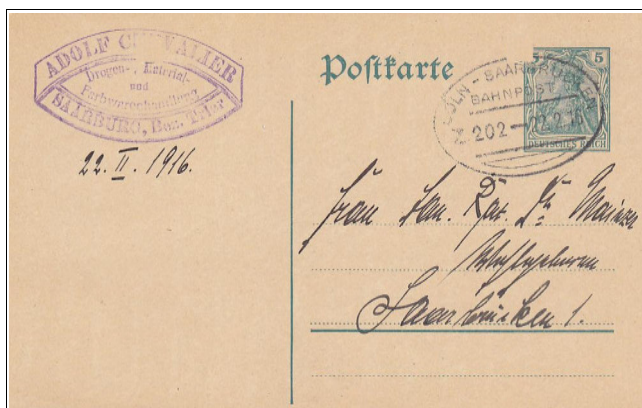 ADOLF CHEVALIER
Drogen-, Material-
und
Farbwarenhandlung
SAARBURG, Bez. Trier
22. II. 1916.
Postkarte
CÖLN - SAARBRÜCKEN
BAHNPOST
202 22.2.16
5
DEUTSCHES REICH
Frau San. Rat. Dr. Mainzer
Wohlgeboren
Saarbrücken 1.